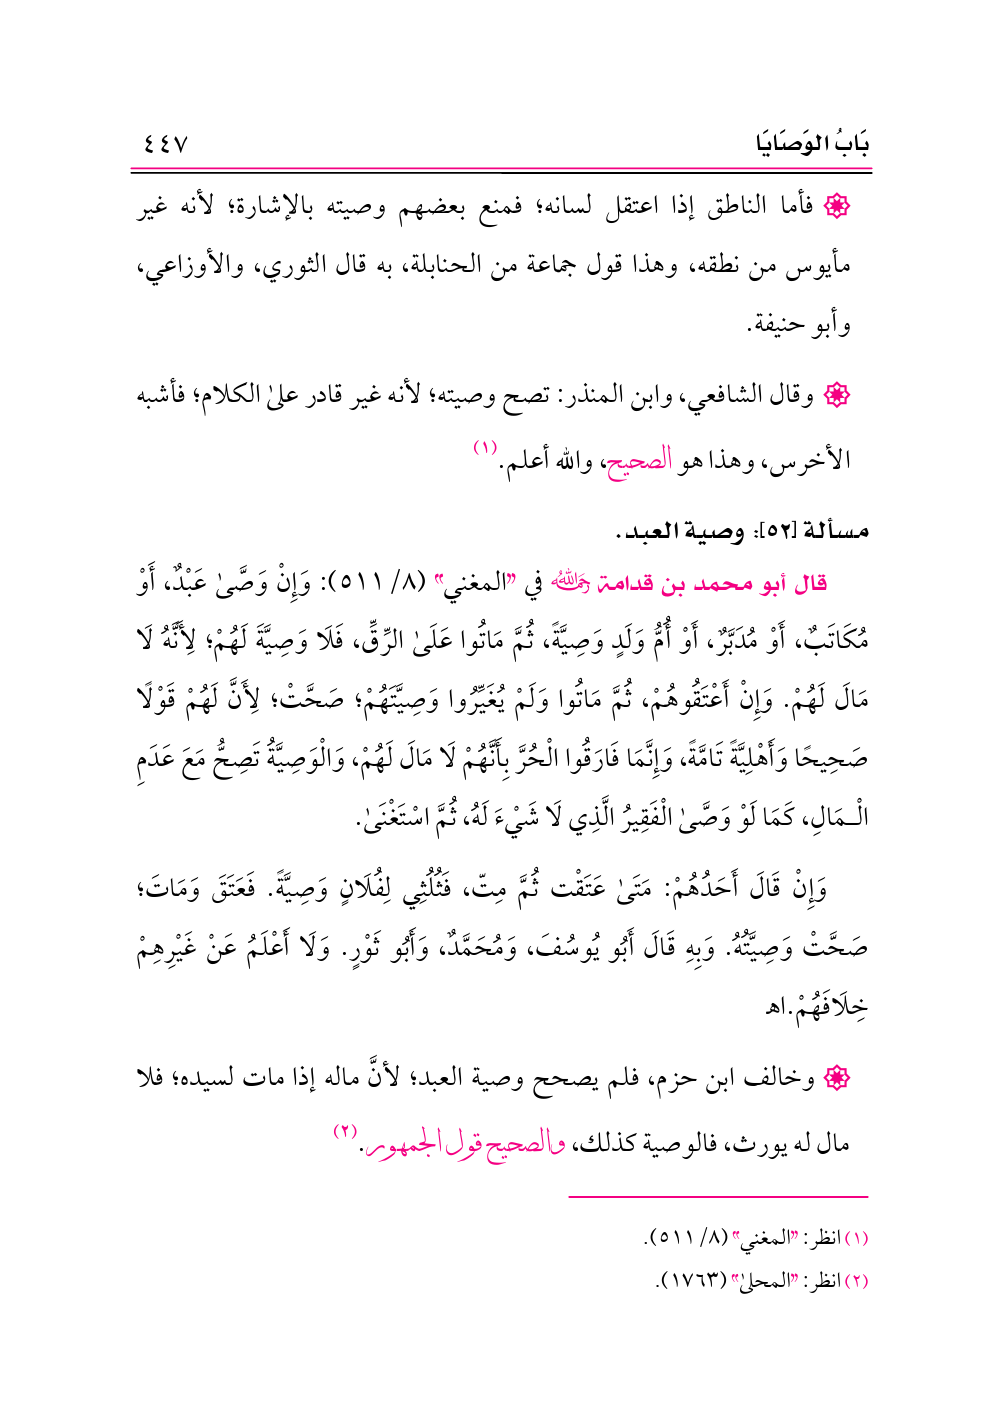 بَابُ الوَصَايَا ٤٤٧
فأما الناطق إذا اعتقل لسانه؛ فمنع بعضهم وصيته بالإشارة؛ لأنه غير
مأيوس من نطقه، وهذا قول جماعة من الحنابلة، به قال الثوري، والأوزاعي،
وأبو حنيفة.
وقال الشافعي، وابن المنذر: تصح وصيته؛ لأنه غير قادر علىٰ الكلام؛ فأشبه
الأخرس، وهذا هو الصحيح، والله أعلم.(١)
مسألة [٥٢]: وصية العبد.
قال أبو محمد بن قدامة رحمه الله في "المغني" (٨/ ٥١١): وَإِنْ وَصَّىٰ عَبْدٌ، أَوْ
مُكَاتَبٌ، أَوْ مُدَبَّرٌ، أَوْ أُمُّ وَلَدٍ وَصِيَّةً، ثُمَّ مَاتُوا عَلَىٰ الرِّقِّ، فَلَا وَصِيَّةَ لَهُمْ؛ لِأَنَّهُ لَا
مَالَ لَهُمْ. وَإِنْ أَعْتَقُوهُمْ، ثُمَّ مَاتُوا وَلَمْ يُغَيِّرُوا وَصِيَّتَهُمْ؛ صَحَّتْ؛ لِأَنَّ لَهُمْ قَوْلًا
صَحِيحًا وَأَهْلِيَّةً تَامَّةً، وَإِنَّمَا فَارَقُوا الْحُرَّ بِأَنَّهُمْ لَا مَالَ لَهُمْ، وَالْوَصِيَّةُ تَصِحُّ مَعَ عَدَمِ
الْـمَالِ، كَمَا لَوْ وَصَّىٰ الْفَقِيرُ الَّذِي لَا شَيْءَ لَهُ، ثُمَّ اسْتَغْنَىٰ.
وَإِنْ قَالَ أَحَدُهُمْ: مَتَىٰ عَتَقْت ثُمَّ مِتّ، فَثُلُثِي لِفُلَانٍ وَصِيَّةً. فَعَتَقَ وَمَاتَ؛
صَحَّتْ وَصِيَّتُهُ. وَبِهِ قَالَ أَبُو يُوسُفَ، وَمُحَمَّدٌ، وَأَبُو ثَوْرٍ. وَلَا أَعْلَمُ عَنْ غَيْرِهِمْ
خِلَافَهُمْ.اهـ
وخالف ابن حزم، فلم يصحح وصية العبد؛ لأنَّ ماله إذا مات لسيده؛ فلا
مال له يورث، فالوصية كذلك، والصحيح قول الجمهور.(٢)
(١) انظر: "المغني" (٨/ ٥١١).
(٢) انظر: "المحلىٰ" (١٧٦٣).